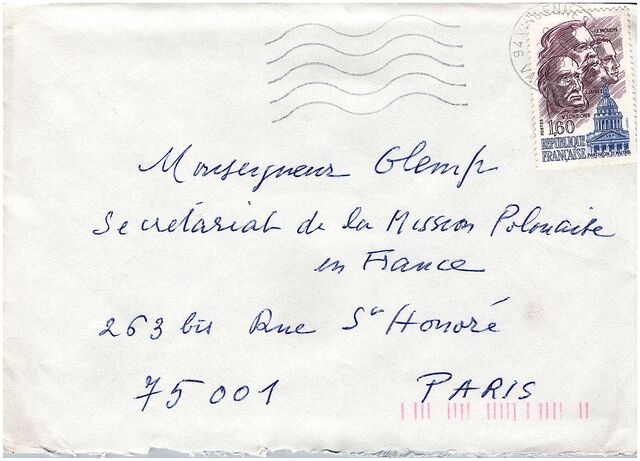 94 VINCENNES
J. MOULIN
J. JAURES
V. SCHOELCHER
POSTES
1,60
REPUBLIQUE
FRANÇAISE
PANTHEON 21 MAI 1981
Monseigneur Glemp
Secrétariat de la Mission Polonaise
en France
263 bis Rue St Honoré
75001 PARIS